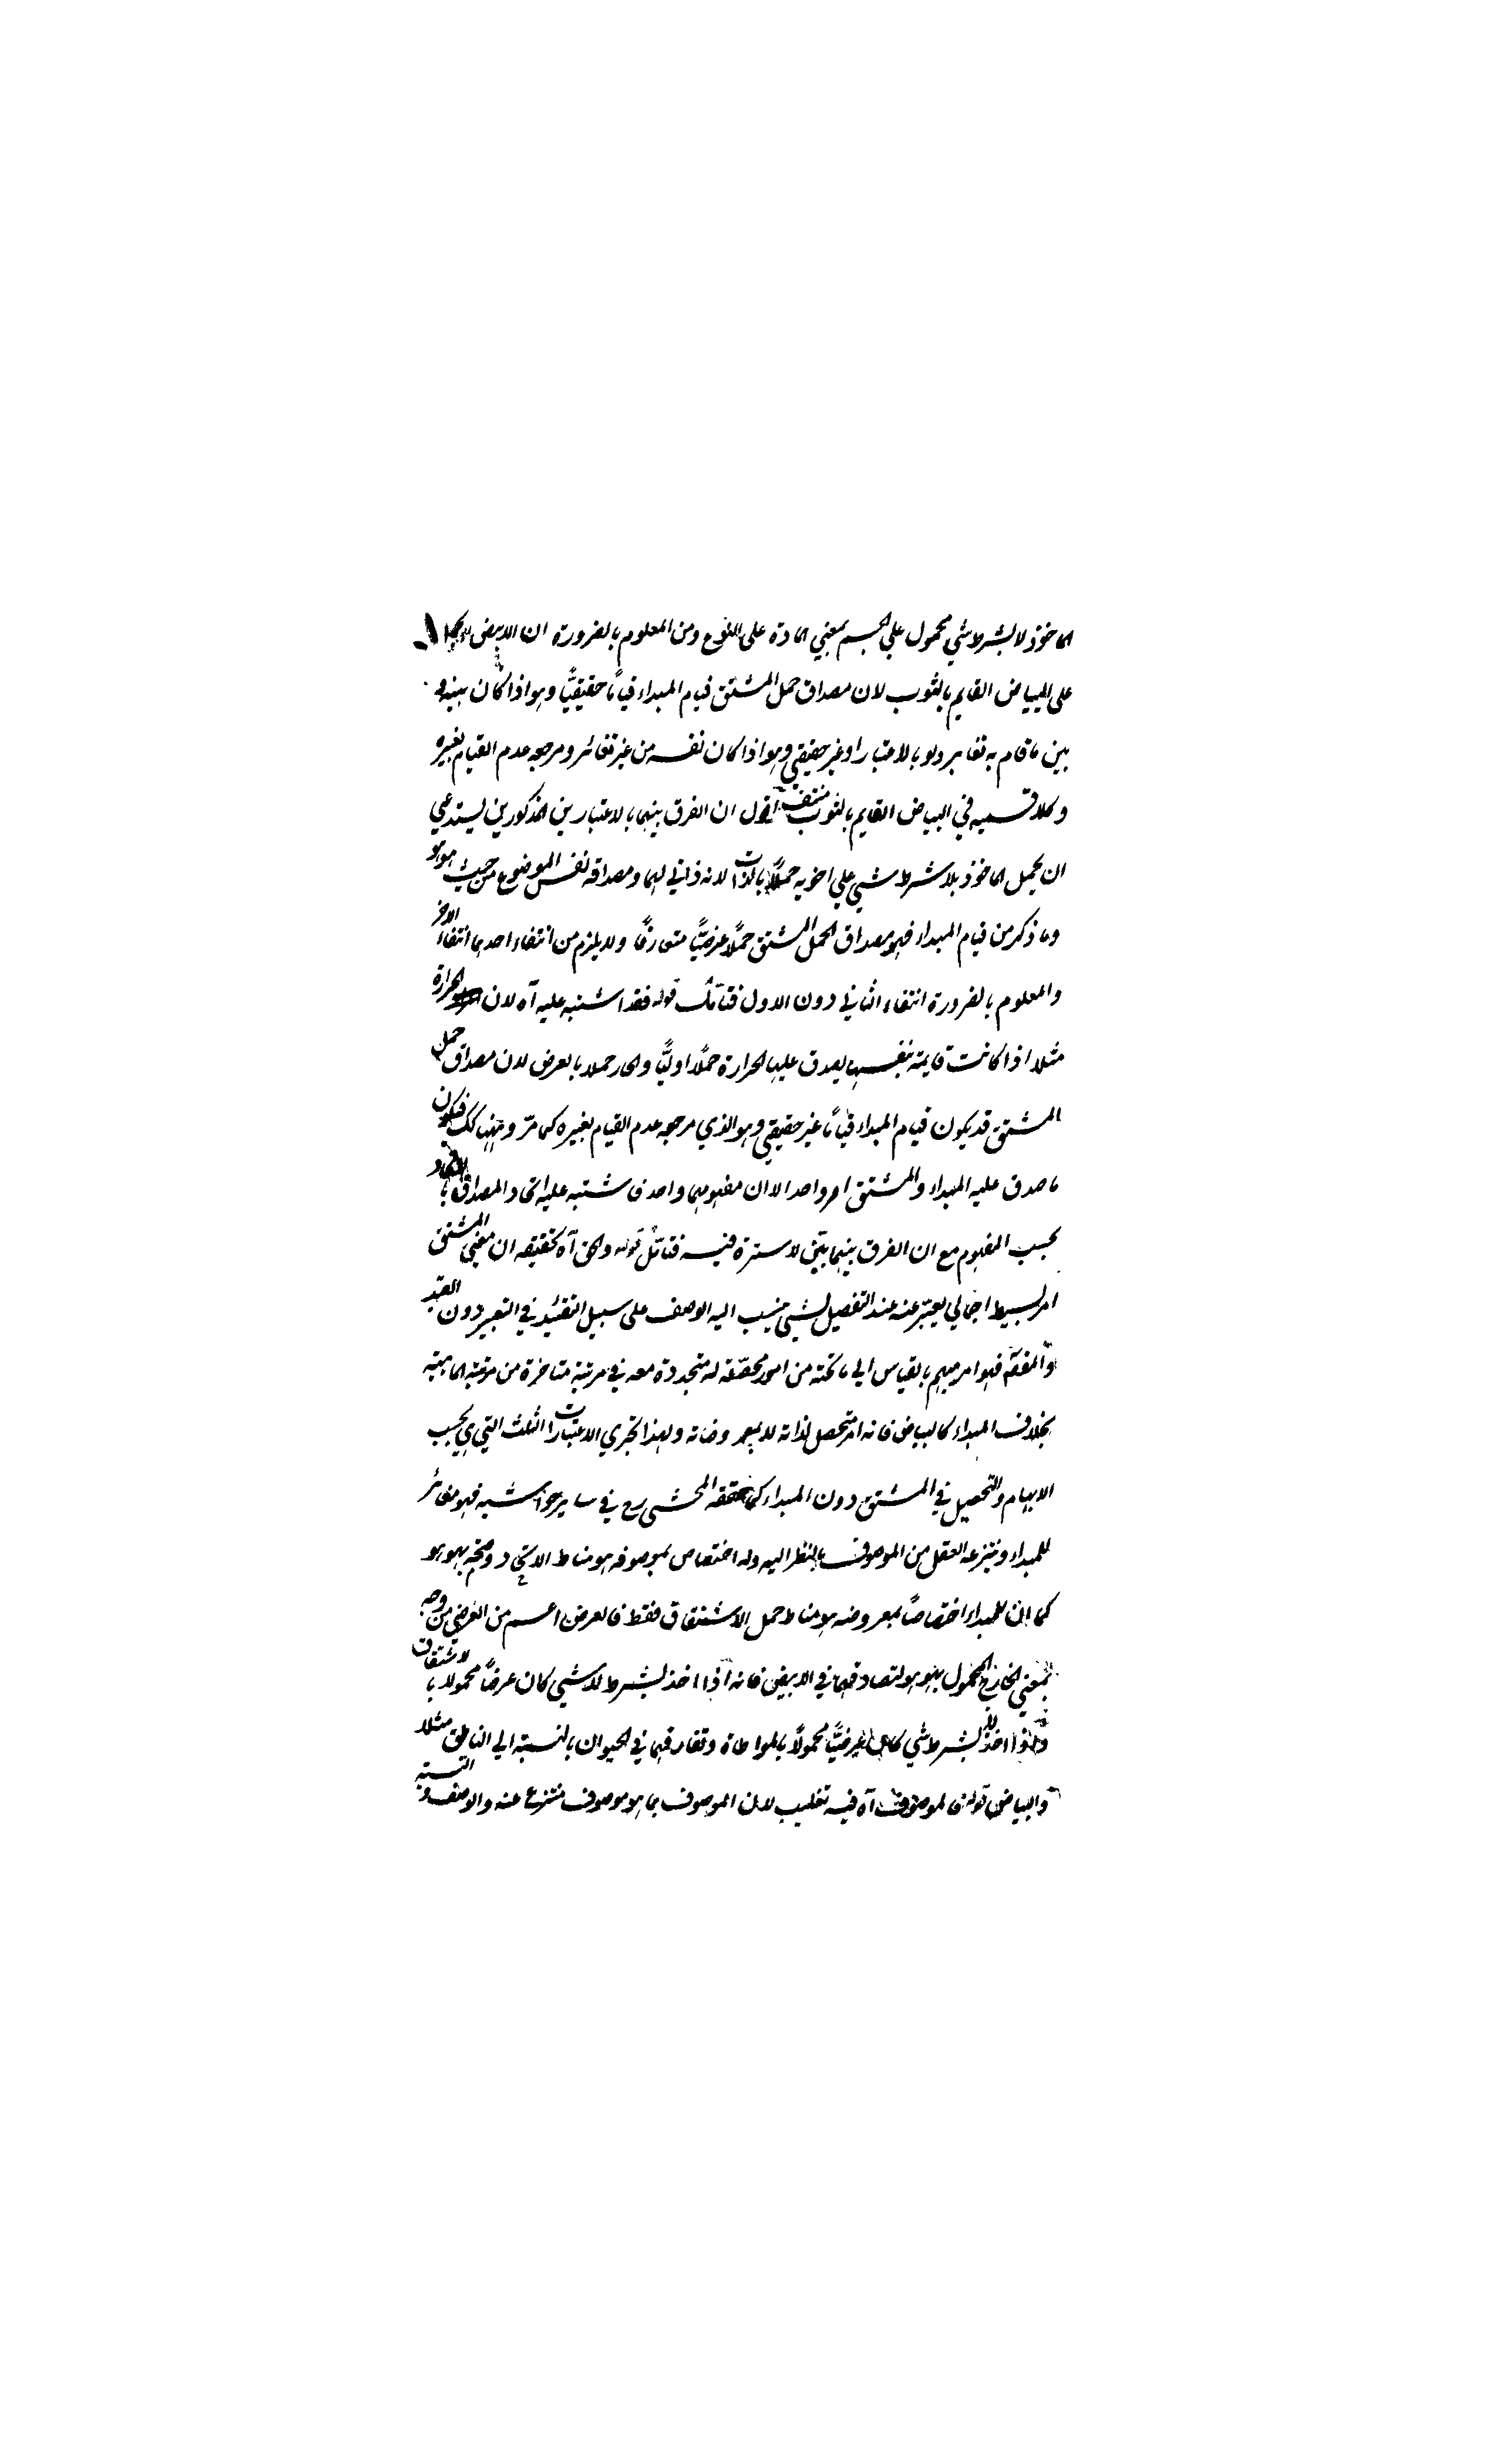 الماخوذ لا بشرط شي محمول علي الجسم بمعني المادة علي النوع ومن المعلوم بالضرورة ان الابيض لا يحمل
علي البياض القايم بالثوب لان مصداق حمل المشتق قيام المبداء قياما حقيقيًا وهو اذا كان بينه و
بين ما قام به تغاير ولو بالاعتبار او غير حقيقي وهو اذا كان نفسه من غير تغائر ومرجعه عدم القيام بغيره
وكلا قسميه في البياض القايم بالثوب منتف اقول ان الفرق بينهما بالاعتبارين المذكورين يستدعي
ان يحمل الماخوذ بلا شرط شيي علي اخويه حملًا بالذات لانه ذاتي لهما ومصداقه نفس الموضوع من حيث هو هو
وما ذكر من قيام المبداء فهو مصداق لحمل المشتق حملًا عرضيًا متعارفًا ولا يلزم من انتفاء احدهما انتفاء الاخر
والمعلوم بالضرورة انتفاء الثاني دون الاول فتأمل قوله فقد اشتبه عليه آه لان الحرارة
مثلا اذا كانت قايمة بنفسها يصدق عليها الحرارة حملًا اوليًا والحار حملا بالعرض لان مصداق حمل
المشتق قد يكون قيام المبداء قياما غير حقيقي وهو الذي مرجعه عدم القيام بغيره كما مرّ وههنا كك فيكون
ما صدق عليه المبداء والمشتق امر واحد الا ان مفهومهما واحد فاشتبه عليه اتحاد المصداق بالاتحاد
بحسب المفهوم مع ان الفرق بينهما بيّن لا سترة فيه فتأمل قوله والحق آه تحقيقه ان معني المشتق
امر بسيط اجمالي يعبّر عنه عند التفصيل بشيي ينسب اليه الوصف علي سبيل التقئيد في التعبير دون القيد
والمفهوم فهو امر مبهم بالقياس الي ما تحته من امور محصّلة له متجددة معه في مرتبة متاخرة من مرتبة الماهية
بخلاف المبداء كالبياض فانه امر متحصل لذاته لا بمعروضاته ولهذا تجري الاعتبارات الثلث التي هي بحسب
الابهام والتحصيل في المشتق دون المبداء كما حققه المحشي رح في ساير حواشيه فهو مغائر
للمبداء وينتزعه العقل من الموصوف بالنظر اليه وله اختصاص بموصوفه هو مناط الاتحاد وصحة بهو هو
كما ان للمبداء اختصاصًا بمعروضه هو مناط حمل الاشتقاق فقط فالعرض اعم من العرضي من وجه
بمعني الخارج المحمول بهو هو لتصادقهما في الابيض فانه اذا اخذ بشرط لا شيي كان عرضًا محمولا بالاشتقاق
واذا اخذ لا بشرط شي كان عرضيًا محمولًا بالمواطاة وتفارقهما في الحيوان بالنسبة الي الناطق مثلا
والبياض قوله فالموصوف آه فيه تغليب لان الموصوف بما هو موصوف منتزع عنه والوصف والنسبة